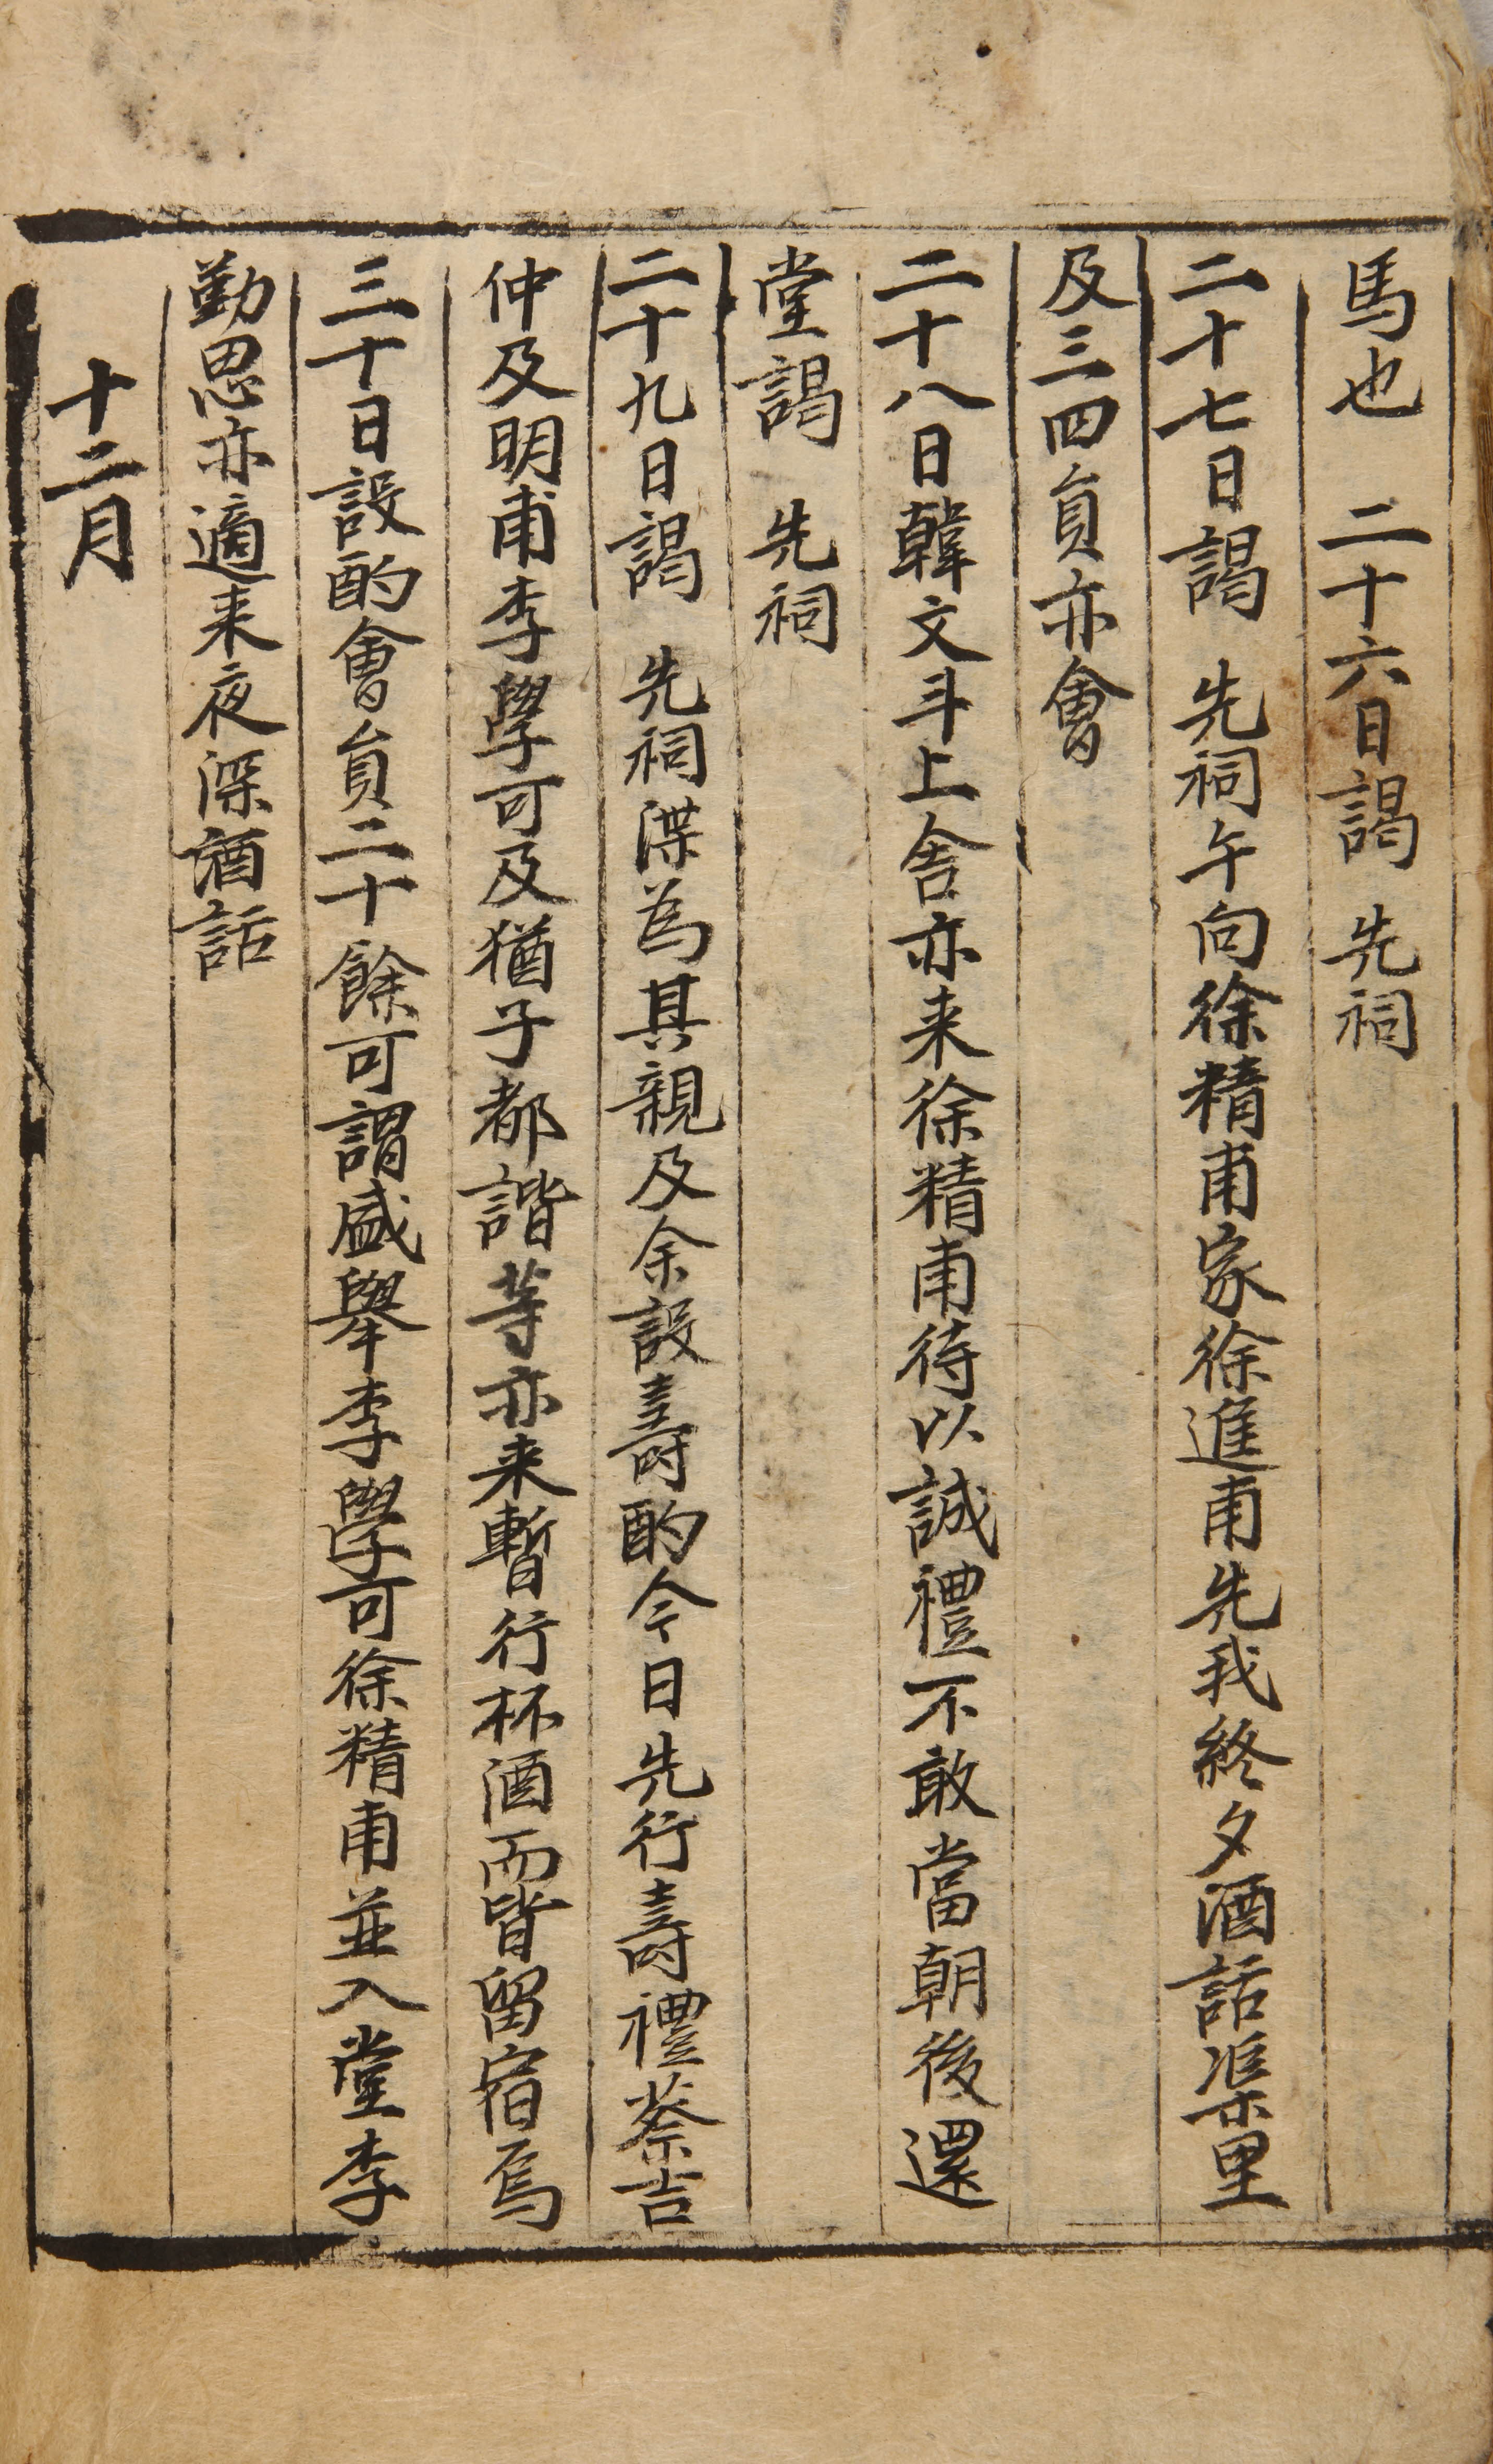 馬也　二十六日謁　先祠
二十七日謁　先祠午向徐精甫家徐進甫先我終夕酒話渠里
及三四員亦會
二十八日韓文斗上舍亦来徐精甫待以誠禮不敢當朝後還
堂謁　先祠
二十九日謁　先祠渫為其親及余設壽酌今日先行壽禮蔡吉
仲及明甫李學可及猶子都諧等亦来暫行杯酒而皆留宿焉
三十日設酌會員二十餘可謂盛擧李學可徐精甫並入堂李
勤思亦適来夜深酒話
十二月